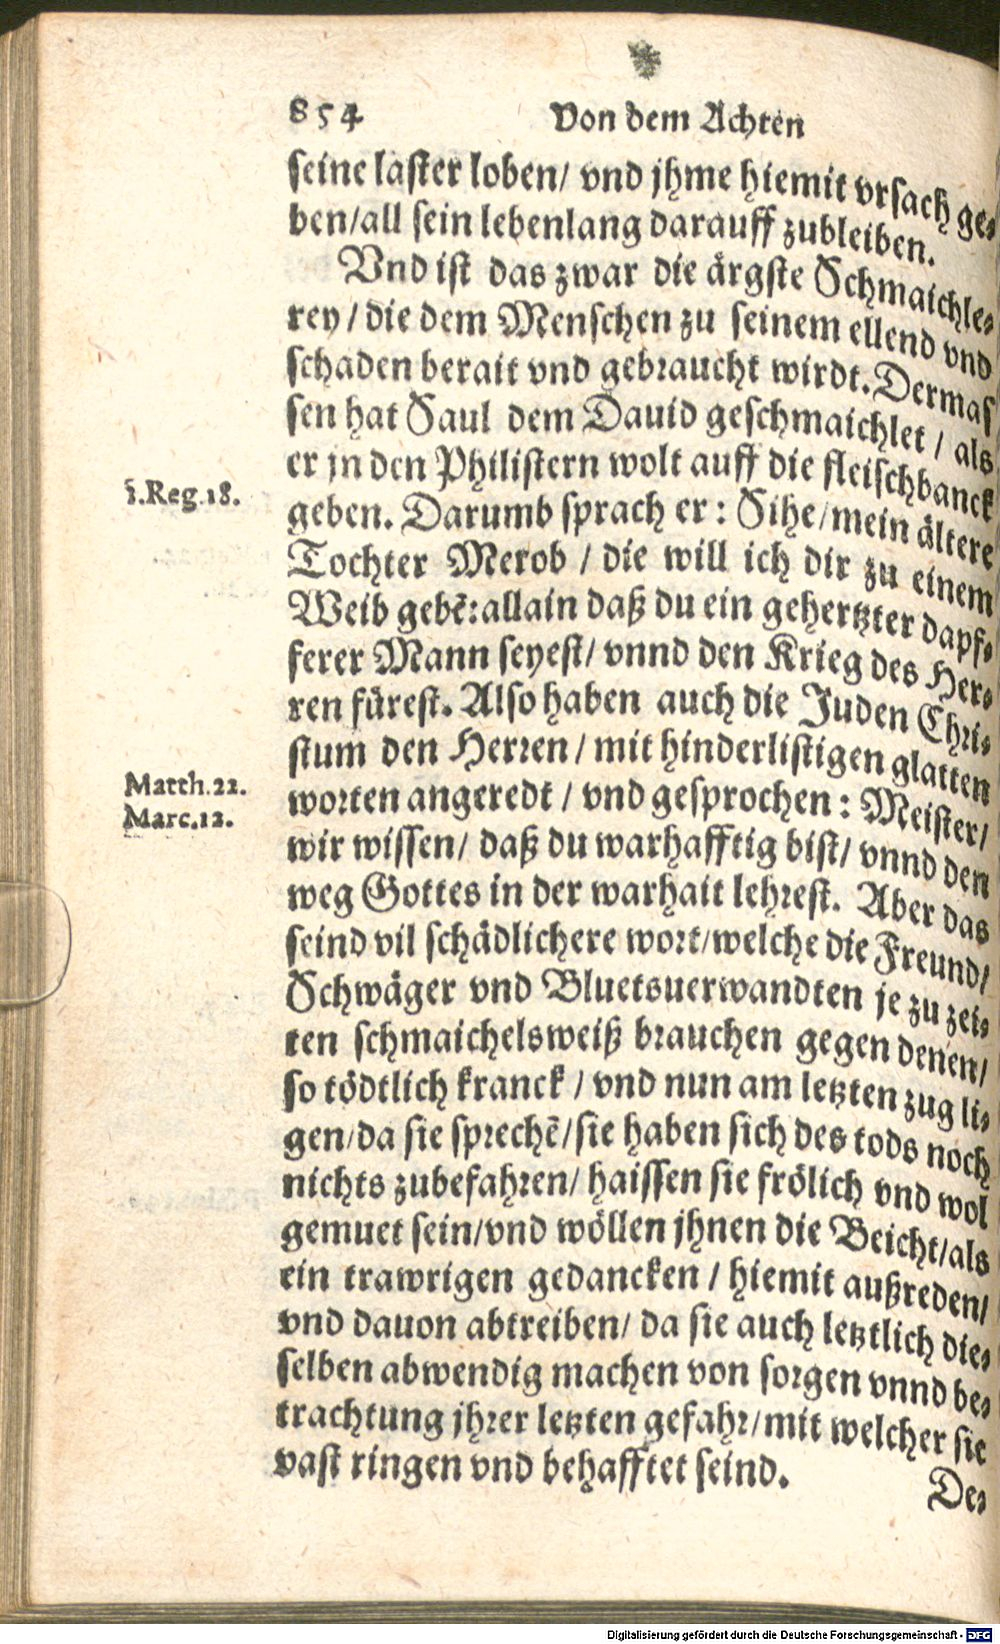 854 Von dem Achten
seine laster loben/ vnd jhme hiemit vrsach ge-
ben/all sein lebenlang darauff zubleiben.
Vnd ist das zwar die ärgste Schmaichle-
rey / die dem Menschen zu seinem ellend vnd
schaden berait vnd gebraucht wirdt. Dermas
sen hat Saul dem Dauid geschmaichlet / als
er jn den Philistern wolt auff die fleischbanck
1.Reg.18.
geben. Darumb sprach er: Sihe/mein ältere
Tochter Merob / die will ich dir zu einem
Weib gebē: allain daß du ein gehertzter dapf-
ferer Mann seyest/ vnnd den Krieg des Her-
ren fürest. Also haben auch die Juden Chri-
stum den Herren / mit hinderlistigen glatten
Matth.22.
worten angeredt / vnd gesprochen: Meister/
Marc.12.
wir wissen/ daß du warhafftig bist/ vnnd den
weg Gottes in der warhait lehrest. Aber das
seind vil schädlichere wort/welche die Freund/
Schwäger vnd Bluetsuerwandten je zu zei-
ten schmaichelsweiß brauchen gegen denen/
so tödtlich kranck / vnd nun am letzten zug li-
gen/da sie sprechē/sie haben sich des tods noch
nichts zubefahren/ haissen sie frölich vnd wol
gemuet sein/vnd wöllen jhnen die Beicht/als
ein trawrigen gedancken / hiemit außreden/
vnd dauon abtreiben/ da sie auch letztlich die-
selben abwendig machen von sorgen vnnd be-
trachtung jhrer letzten gefahr/mit welcher sie
vast ringen vnd behafftet seind.
De-
Digitalisierung gefördert durch die Deutsche Forschungsgemeinschaft - DFG